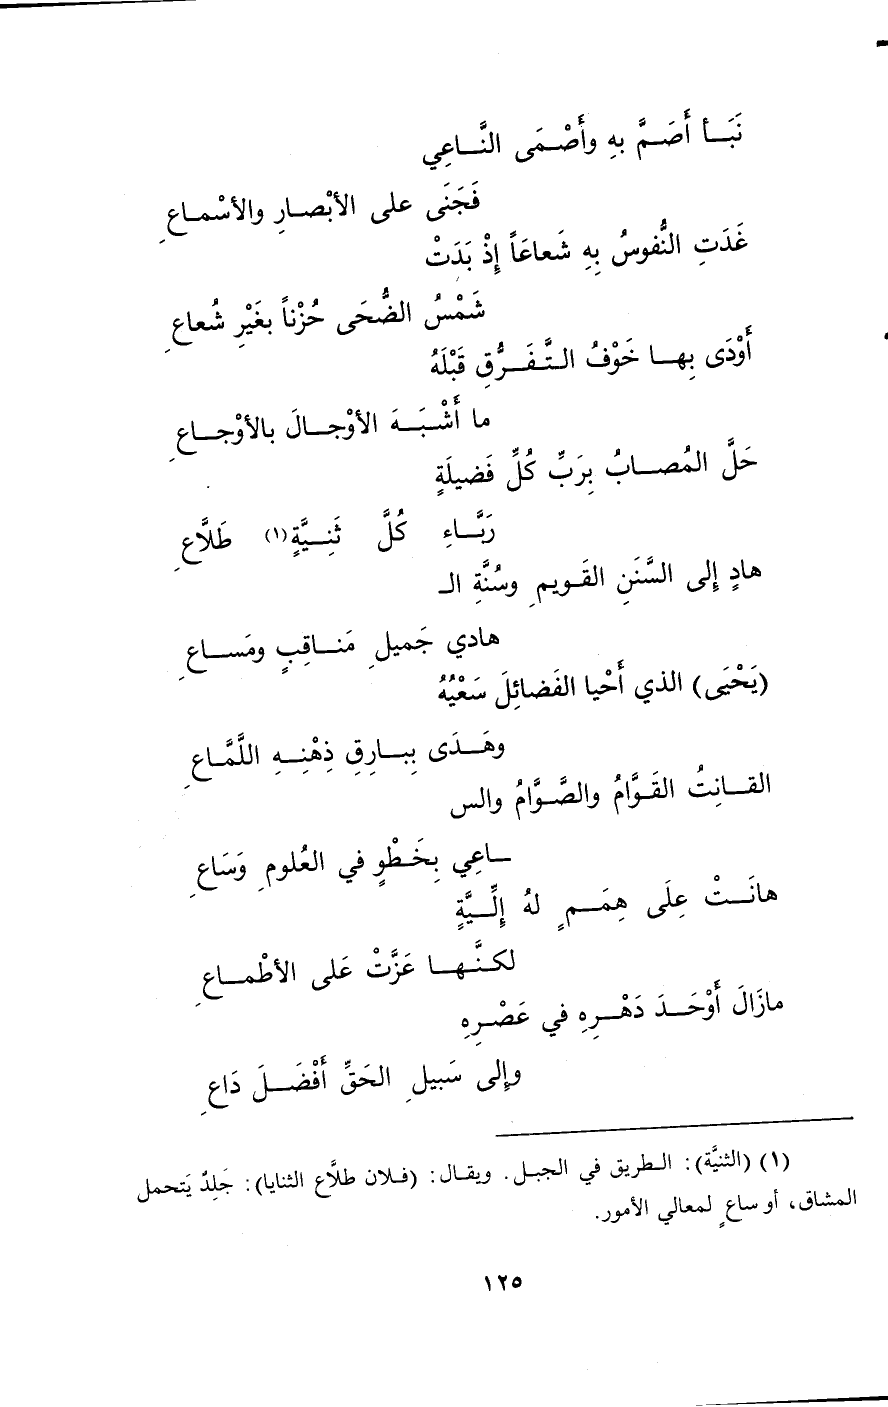 نَبَـــأ أَصَـــمَّ بهِ وأَصْـــمَى النَّـــاعِي
فَجَنَى على الأبْصـارِ والأسْمـاعِ
غَدَتِ النُّفوسُ بِهِ شَعاعَاً إِذْ بَدَتْ
شَمْسُ الضُّحَى حُزْناً بغَيْرِ شُعاعِ
أَوْدَى بِهـــا خَوْفُ التَّـفَـــرُّقِ قَبْلَهُ
ما أَشْـبَـــهَ الأوْجـــالَ بالأوْجـــاعِ
حَلَّ المُصـــابُ بِرَبِّ كُلِّ فَضيلَةٍ
رَبَّـــاءِ كُلَّ ثَنِـــيَّةٍ(١) طَلاَّعِ
هادٍ إِلى السَّنَنِ القَـويمِ وسُنَّةِ الـ
هادي جَميلِ مَنـــاقِبٍ ومَســـاعِ
(يَحْيَى) الذي أَحْيا الفَضائِلَ سَعْيُهُ
وهَـــدَى بِبـــارِقِ ذِهْنِـــهِ اللَّمَّـــاعِ
القـــانِتُ القَـوَّامُ والصَّـوَّامُ والس
ـــاعِي بِخَـطْوٍ في العُلومِ وَسَاعِ
هانَـــتْ عِلَى هِمَـــمٍ لهُ إِلِّـــيَّةٍ
لكـنَّـهـــا عَزَّتْ عَلى الأطْمـــاعِ
مازَالَ أَوْحَـــدَ دَهْـــرِهِ في عَصْـــرِهِ
وإِلى سَبيلِ الحَقِّ أَفْضَـــلَ دَاعِ
(١) (الثنيَّة): الـطريق في الجبـل. ويقـال: (فـلان طلاَّع الثنايا): جَلِدٌ يَتحمل
المشاق، أو ساعٍ لمعالي الأمور.
١٢٥